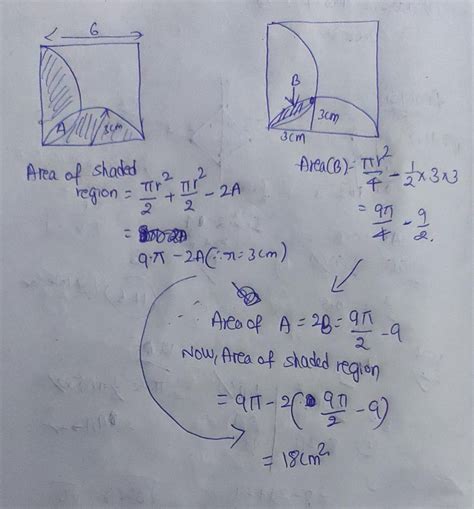 6
A
3cm
B
3cm
3cm
Area of shaded
region = πr²/2 + πr²/2 - 2A
=
9·π - 2A (∵ r = 3cm)
Area(B) = πr²/4 - 1/2 × 3 × 3
= 9π/4 - 9/2.
∴ Area of A = 2B = 9π/2 - 9
Now, Area of shaded region
= 9π - 2(9π/2 - 9)
= 18cm²